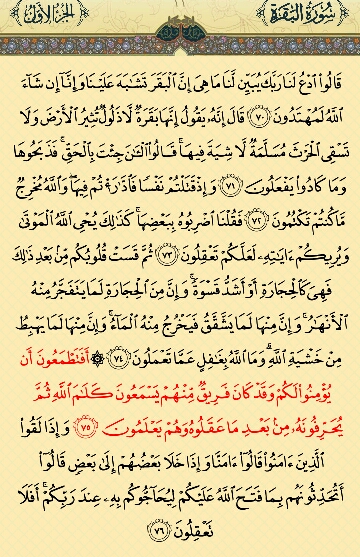 ١١
سُورَةُ البَقَرَةِ
الجُزءُ الأوّلُ
قَالُوا۟ ٱدْعُ لَنَا رَبَّكَ يُبَيِّن لَّنَا مَا هِىَ إِنَّ ٱلْبَقَرَ تَشَٰبَهَ عَلَيْنَا وَإِنَّآ إِن شَآءَ
ٱللَّهُ لَمُهْتَدُونَ ٧٠ قَالَ إِنَّهُۥ يَقُولُ إِنَّهَا بَقَرَةٌ لَّا ذَلُولٌ تُثِيرُ ٱلْأَرْضَ وَلَا
تَسْقِى ٱلْحَرْثَ مُسَلَّمَةٌ لَّا شِيَةَ فِيهَا ۚ قَالُوا۟ ٱلْـَٰٔنَ جِئْتَ بِٱلْحَقِّ ۚ فَذَبَحُوهَا
وَمَا كَادُوا۟ يَفْعَلُونَ ٧١ وَإِذْ قَتَلْتُمْ نَفْسًا فَٱدَّٰرَْٰٔتُمْ فِيهَا ۖ وَٱللَّهُ مُخْرِجٌ
مَّا كُنتُمْ تَكْتُمُونَ ٧٢ فَقُلْنَا ٱضْرِبُوهُ بِبَعْضِهَا ۚ كَذَٰلِكَ يُحْىِ ٱللَّهُ ٱلْمَوْتَىٰ
وَيُرِيكُمْ ءَايَٰتِهِۦ لَعَلَّكُمْ تَعْقِلُونَ ٧٣ ثُمَّ قَسَتْ قُلُوبُكُم مِّنۢ بَعْدِ ذَٰلِكَ
فَهِىَ كَٱلْحِجَارَةِ أَوْ أَشَدُّ قَسْوَةً ۚ وَإِنَّ مِنَ ٱلْحِجَارَةِ لَمَا يَتَفَجَّرُ مِنْهُ
ٱلْأَنْهَٰرُ ۚ وَإِنَّ مِنْهَا لَمَا يَشَّقَّقُ فَيَخْرُجُ مِنْهُ ٱلْمَآءُ ۚ وَإِنَّ مِنْهَا لَمَا يَهْبِطُ
مِنْ خَشْيَةِ ٱللَّهِ ۗ وَمَا ٱللَّهُ بِغَٰفِلٍ عَمَّا تَعْمَلُونَ ٧٤ ۞ أَفَتَطْمَعُونَ أَن
يُؤْمِنُوا۟ لَكُمْ وَقَدْ كَانَ فَرِيقٌ مِّنْهُمْ يَسْمَعُونَ كَلَٰمَ ٱللَّهِ ثُمَّ
يُحَرِّفُونَهُۥ مِنۢ بَعْدِ مَا عَقَلُوهُ وَهُمْ يَعْلَمُونَ ٧٥ وَإِذَا لَقُوا۟
ٱلَّذِينَ ءَامَنُوا۟ قَالُوٓا۟ ءَامَنَّا وَإِذَا خَلَا بَعْضُهُمْ إِلَىٰ بَعْضٍ قَالُوٓا۟
أَتُحَدِّثُونَهُم بِمَا فَتَحَ ٱللَّهُ عَلَيْكُمْ لِيُحَآجُّوكُم بِهِۦ عِندَ رَبِّكُمْ ۚ أَفَلَا
تَعْقِلُونَ ٧٦